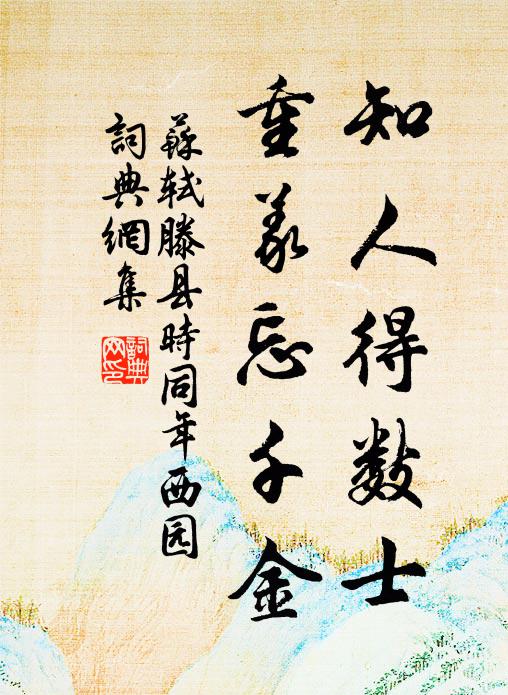 知人得数士
重义忘千金
蘇軾滕县時同年西园
詞典網集
詞典
网印